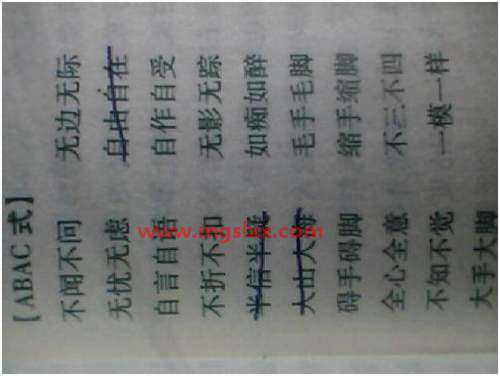 【ABAC 式】
不闻不问 无边无际
无忧无虑 自由自在
自言自语 自作自受
不折不扣 无影无踪
半信半疑 如痴如醉
人山人海 毛手毛脚
碍手碍脚 缩手缩脚
全心全意 不三不四
不知不觉 一模一样
大手大脚